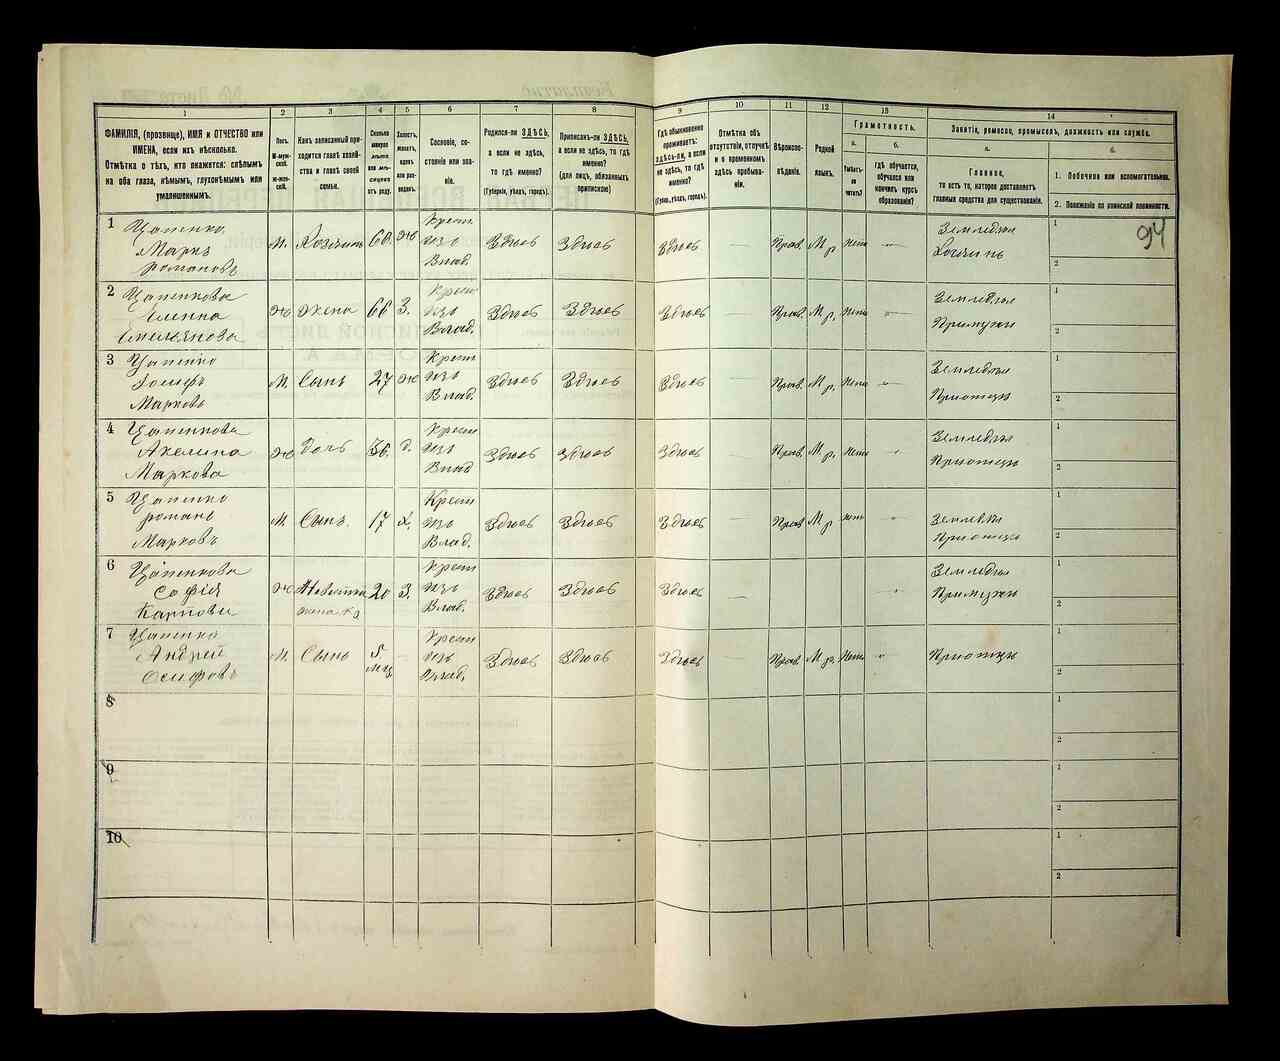 1
ФАМИЛІЯ, (прозвище), ИМЯ и ОТЧЕСТВО или
ИМЕНА, если ихъ нѣсколько.
Отмѣтка о тѣхъ, кто окажется: слѣпымъ
на оба глаза, нѣмымъ, глухонѣмымъ или
умалишеннымъ.
2
Полъ.
М-мужской.
Ж-женскій.
3
Какъ записанный приходится главѣ хозяйства и главѣ своей семьи.
4
Сколько минуло лѣтъ или мѣсяцевъ отъ роду.
5
Холостъ, женатъ, вдовъ или разведенъ.
6
Сословіе, состояніе или званіе.
7
Родился-ли ЗДѢСЬ,
а если не здѣсь,
то гдѣ именно?
(Губернія, уѣздъ, городъ).
8
Приписанъ-ли ЗДѢСЬ,
а если не здѣсь, то гдѣ
именно?
(для лицъ, обязанныхъ
припискою)
9
Гдѣ обыкновенно
проживаетъ:
ЗДѢСЬ-ли, а если
не здѣсь, то гдѣ
именно?
(Губер., уѣздъ, городъ).
10
Отмѣтка объ
отсутствіи, отлучкѣ
и о временномъ
здѣсь пребываніи.
11
Вѣроисповѣданіе.
12
Родной
языкъ.
13
Грамотность.
а.
Умѣетъ-ли
читать?
б.
гдѣ обучается,
обучался или
кончилъ курсъ
образованія?
14
Занятіе, ремесло, промыселъ, должность или служба.
а.
Главное,
то есть то, которое доставляетъ
главныя средства для существованія.
б.
1. Побочное или вспомогательное.
2. Положеніе по воинской повинности.
94
1 Цапенко Маркъ Романовъ М. Хозяинъ 60 Крест. изъ Влад. Здѣсь Здѣсь Здѣсь — Прав. М. р. Нетъ — Земледѣл Хозяинъ 1 2
2 Цапенкова Емельянова Ж жена 66 З. Крест изъ Влад. Здѣсь Здѣсь Здѣсь — Прав. М. р. Нетъ — Земледѣл Примужи 1 2
3 Цапенко Марковъ М. Сынъ 27 Ж Крест изъ Влад. Здѣсь Здѣсь Здѣсь — Прав. М р. Нетъ — Земледѣл Приотцѣ 1 2
4 Цапенкова Акелина Маркова Ж Дочь 36 д. Крест изъ Влад Здѣсь Здѣсь Здѣсь — Прав. М р. Нетъ Земледѣл Приотцѣ 1 2
5 Цапенко Романъ Марковъ М. Сынъ. 17 Х. Крест изъ Влад. Здѣсь Здѣсь Здѣсь — Прав М р. Нетъ Земледѣл Приотцѣ 1 2
6 Цапенкова Софія Карпови Ж Невѣстка жена 20 З. Крест изъ Влад. Здѣсь Здѣсь Здѣсь — Земледѣл Примужи 1 2
7 Цапенко Андрей Осифовъ М. Сынъ 5 мѣц — Крест изъ Влад. Здѣсь Здѣсь Здѣсь — Прав М р. Нетъ Приотцѣ 1 2
8 1 2
9 1 2
10 1 2